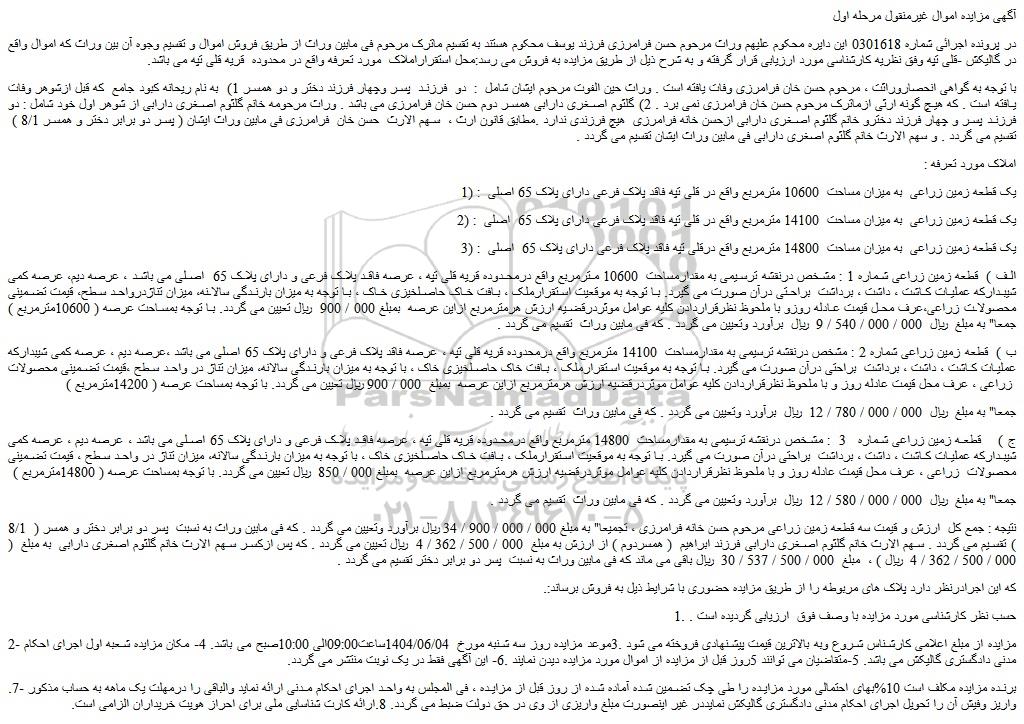 آگهی مزایده اموال غیرمنقول مرحله اول
در پرونده اجرائی شماره 0301618 این دایره محکوم علیهم وراث مرحوم حسن فرامرزی فرزند یوسف محکوم هستند به تقسیم ماترک مرحوم فی مابین وراث از طریق فروش اموال و تقسیم وجوه آن بین وراث که اموال واقع
در گالیکش -قلی تپه وفق نظریه کارشناسی مورد ارزیابی قرار گرفته و به شرح ذیل از طریق مزایده به فروش می رسد:محل استقراراملاک مورد تعرفه واقع در محدوده قریه قلی تپه می باشد.
با توجه به گواهی انحصاروراثت ، مرحوم حسن خان فرامرزی وفات یافته است . وراث حین الفوت مرحوم ایشان شامل : دو فرزند پسر وچهار فرزند دختر و دو همسر 1) به نام ریحانه کبود جامع که قبل ازشوهر وفات
یافته است . که هیچ گونه ارثی ازماترک مرحوم حسن خان فرامرزی نمی برد . 2) گلثوم اصغری دارابی همسر دوم حسن خان فرامرزی می باشد . وراث مرحومه خانم گلثوم اصغری دارابی از شوهر اول خود شامل : دو
فرزند پسر و چهار فرزند دخترو خانم گلثوم اصغری دارابی ازحسن خانه فرامرزی هیچ فرزندی ندارد .مطابق قانون ارث ، سهم الارث حسن خان فرامرزی فی مابین وراث ایشان ( پسر دو برابر دختر و همسر 8/1 )
تقسیم می گردد . و سهم الارث خانم گلثوم اصغری دارابی فی مابین وراث ایشان تقسیم می گردد .
املاک مورد تعرفه :
یک قطعه زمین زراعی به میزان مساحت 10600 مترمربع واقع در قلی تپه فاقد پلاک فرعی دارای پلاک 65 اصلی : (1
یک قطعه زمین زراعی به میزان مساحت 14100 مترمربع واقع در قلی تپه فاقد پلاک فرعی دارای پلاک 65 اصلی : (2
یک قطعه زمین زراعی به میزان مساحت 14800 مترمربع واقع درقلی تپه فاقد پلاک فرعی دارای پلاک 65 اصلی : (3
الف ) قطعه زمین زراعی شماره 1 : مشخص درنقشه ترسیمی به مقدارمساحت 10600 مترمربع واقع درمحدوده قریه قلی تپه ، عرصه فاقد پلاک فرعی و دارای پلاک 65 اصلی می باشد ، عرصه دیم، عرصه کمی
شیبدارکه عملیات کاشت ، داشت ، برداشت براحتی درآن صورت می گیرد. با توجه به موقعیت استقرارملک ، بافت خاک حاصلخیزی خاک ، با توجه به میزان بارندگی سالانه، میزان تناژدرواحد سطح، قیمت تضمینی
محصولات زراعی،عرف محل قیمت عادله روزو با ملحوظ نظرقراردادن کلیه عوامل موثردرقضیه ارزش هرمترمربع ازاین عرصه بمبلغ 000 / 900 ریال تعیین می گردد. با توجه بمساحت عرصه ( 10600مترمربع )
جمعا" به مبلغ ریال 000 / 000 / 540 / 9 ریال برآورد وتعیین می گردد . که فی مابین وراث تقسیم می گردد .
ب ) قطعه زمین زراعی شماره 2 : مشخص درنقشه ترسیمی به مقدارمساحت 14100 مترمربع واقع درمحدوده قریه قلی تپه ، عرصه فاقد پلاک فرعی و دارای پلاک 65 اصلی می باشد ،عرصه دیم ، عرصه کمی شیبدارکه
عملیات کاشت ، داشت ، برداشت براحتی درآن صورت می گیرد. با توجه به موقعیت استقرارملک ، بافت خاک حاصلخیزی خاک ، با توجه به میزان بارندگی سالانه، میزان تناژ در واحد سطح ،قیمت تضمینی محصولات
زراعی ، عرف محل قیمت عادله روز و با ملحوظ نظرقراردادن کلیه عوامل موثردرقضیه ارزش هرمترمربع ازاین عرصه بمبلغ 000 / 900 ریال تعیین می گردد. با توجه بمساحت عرصه ( 14200مترمربع )
جمعا" به مبلغ ریال 000 / 000 / 780 / 12 ریال برآورد وتعیین می گردد . که فی مابین وراث تقسیم می گردد .
ج ) قطعه زمین زراعی شماره 3 : مشخص درنقشه ترسیمی به مقدارمساحت 14800 مترمربع واقع درمحدوده قریه قلی تپه ، عرصه فاقد پلاک فرعی و دارای پلاک 65 اصلی می باشد ، عرصه دیم ، عرصه کمی
شیبدارکه عملیات کاشت ، داشت ، برداشت براحتی درآن صورت می گیرد. با توجه به موقعیت استقرارملک ، بافت خاک حاصلخیزی خاک ، با توجه به میزان بارندگی سالانه، میزان تناژ در واحد سطح ، قیمت تضمینی
محصولات زراعی ، عرف محل قیمت عادله روز و با ملحوظ نظرقراردادن کلیه عوامل موثردرقضیه ارزش هرمترمربع ازاین عرصه بمبلغ 000 / 850 ریال تعیین می گردد. با توجه بمساحت عرصه ( 14800مترمربع )
جمعا" به مبلغ ریال 000 / 000 / 580 / 12 ریال برآورد وتعیین می گردد . که فی مابین وراث تقسیم می گردد .
نتیجه : جمع کل ارزش و قیمت سه قطعه زمین زراعی مرحوم حسن خانه فرامرزی ، تجمیعا" به مبلغ 000 / 000 / 900 / 34 ریال برآورد وتعیین می گردد . که فی مابین وراث به نسبت پسر دو برابر دختر و همسر ( 8/1
) تقسیم می گردد . سهم الارث خانم گلثوم اصغری دارابی فرزند ابراهیم ( همسردوم ) از ارزش به مبلغ 000 / 500 / 362 / 4 ریال تعیین می گردد . که پس ازکسر سهم الارث خانم گلثوم اصغری دارابی به مبلغ (
000 / 500 / 362 / 4 ریال ) ، مبلغ 000 / 500 / 537 / 30 ریال باقی می ماند که فی مابین وراث به نسبت پسر دو برابر دختر تقسیم می گردد .
که این اجرادرنظر دارد پلاک های مربوطه را از طریق مزایده حضوری با شرایط ذیل به فروش برساند:.
حسب نظر کارشناسی مورد مزایده با وصف فوق ارزیابی گردیده است . .1
مزایده از مبلغ اعلامی کارشناس شروع وبه بالاترین قیمت پیشنهادی فروخته می شود .3موعد مزایده روز سه شنبه مورخ 1404/06/04ساعت09:00الی 10:00صبح می باشد. 4- مکان مزایده شعبه اول اجرای احکام -2
مدنی دادگستری گالیکش می باشد. 5-متقاضیان می توانند 5روز قبل از مزایده از اموال مورد مزایده دیدن نمایند .6- این آگهی فقط در یک نوبت منتشر می گردد.
برنده مزایده مکلف است 10%بهای احتمالی مورد مزایده را طی چک تضمین شده آماده شده از روز قبل از مزایده ، فی المجلس به واحد اجرای احکام مدنی ارائه نماید والباقی را درمهلت یک ماهه به حساب مذکور -7.
واریز وفیش آن را تحویل اجرای احکام مدنی دادگستری گالیکش نمایددر غیر اینصورت مبلغ واریزی از وی در حق دولت ضبط می گردد. 8.ارائه کارت شناسایی ملی برای احراز هویت خریداران الزامی است.
ParsNamadData
۰۲۱-۸۸۳۴۹۶۷۰-۵